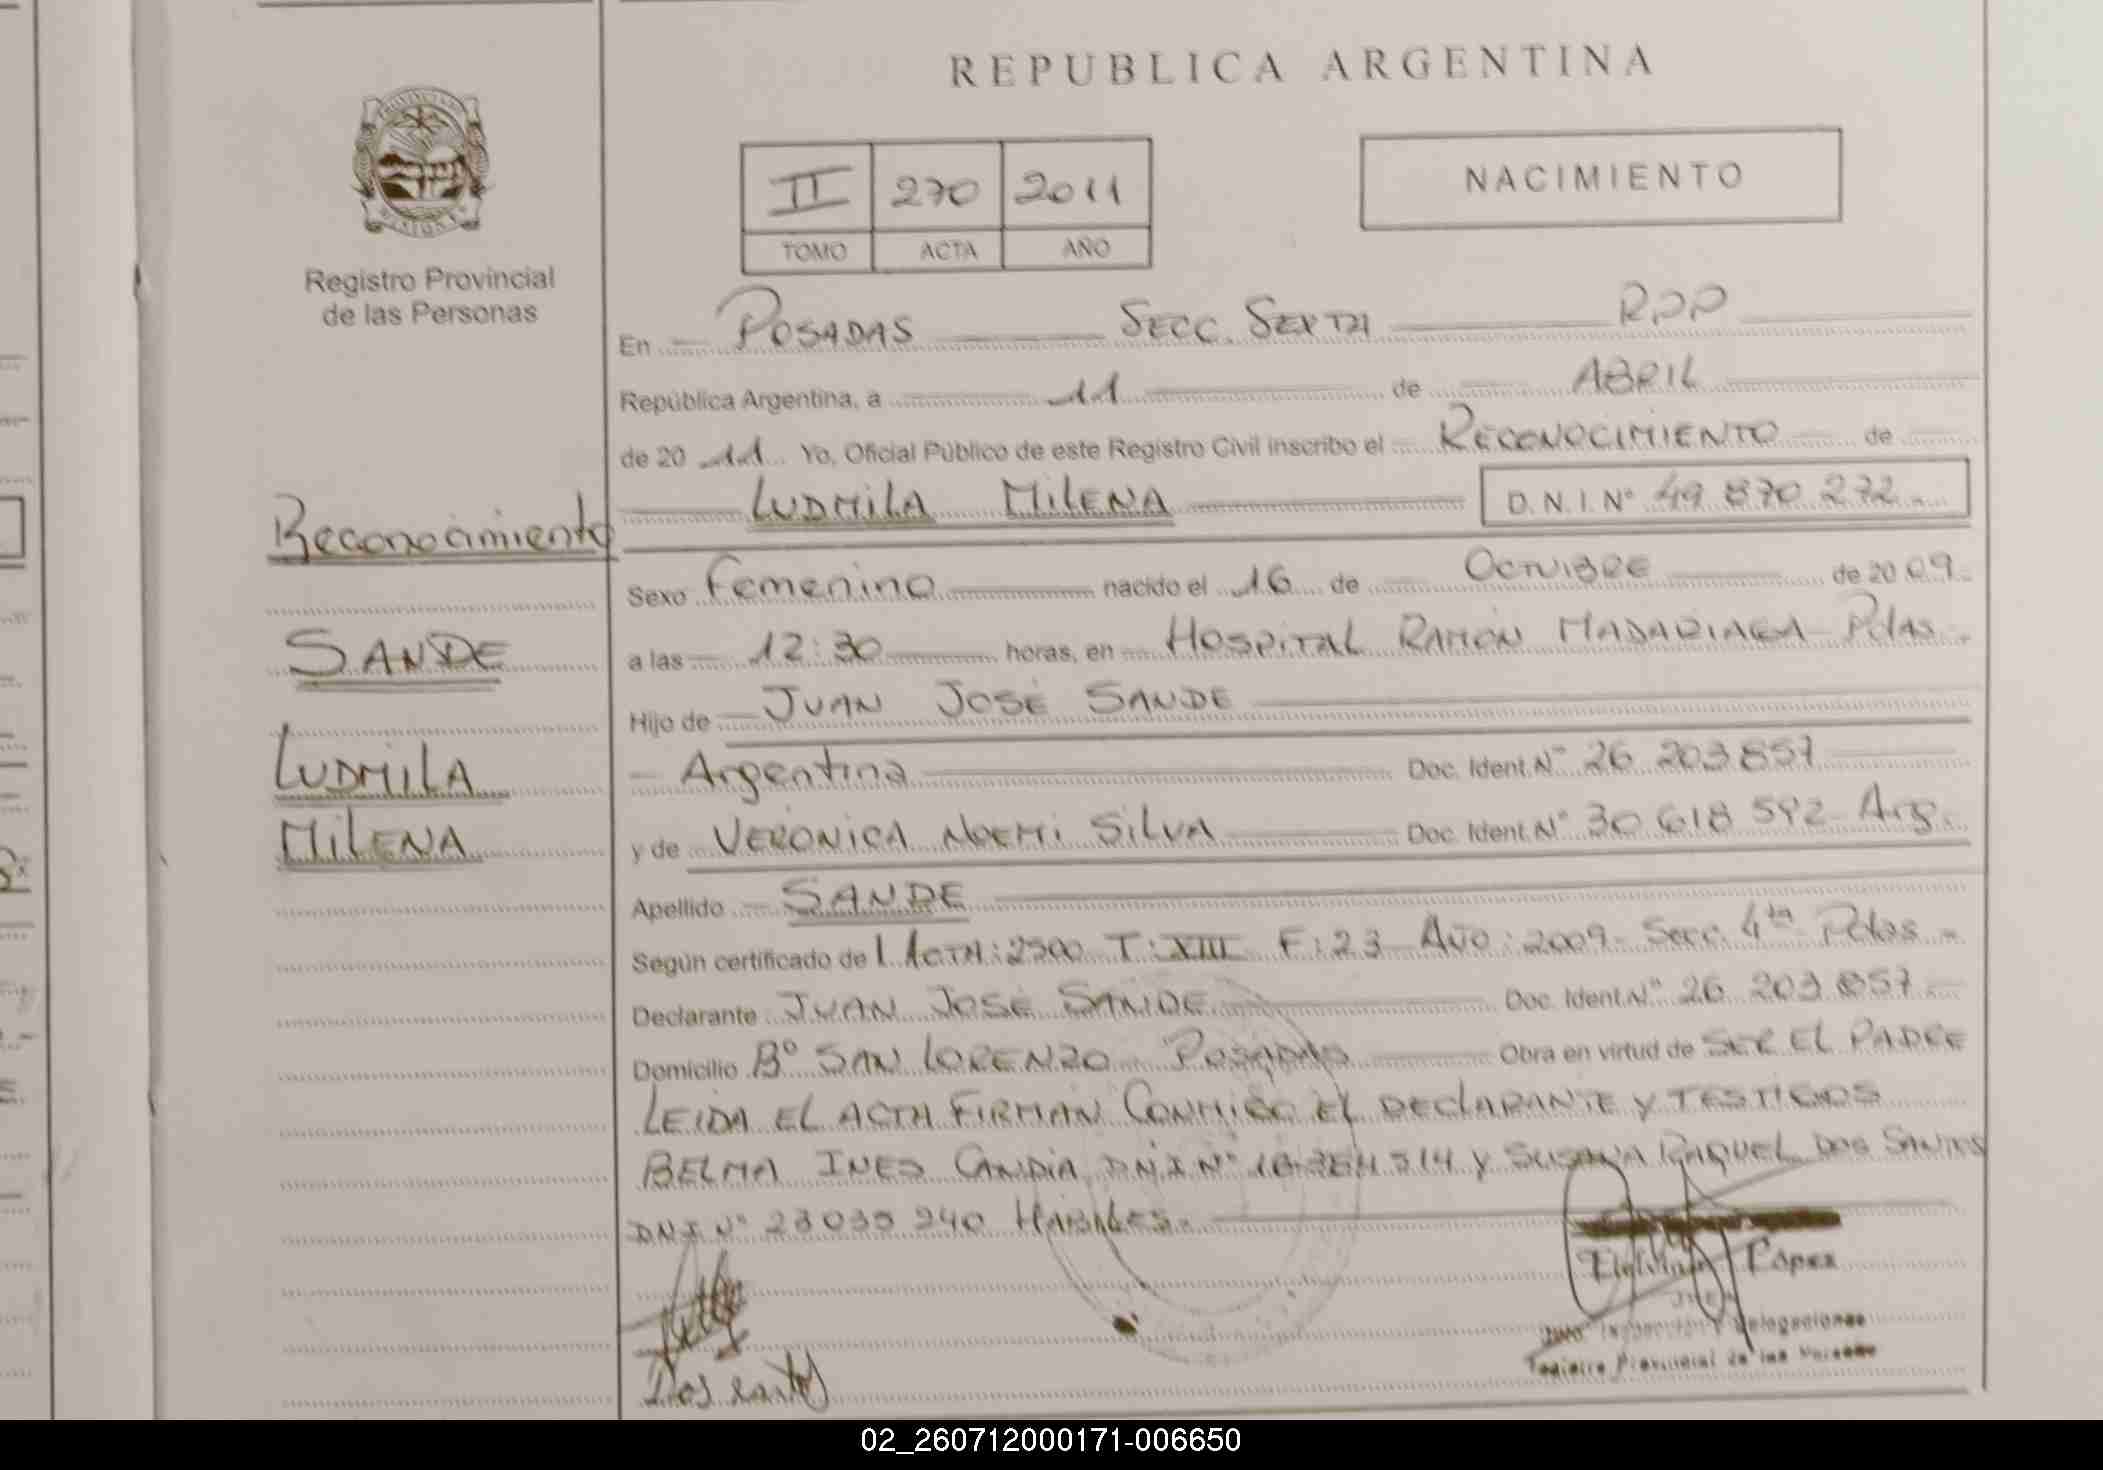 REPUBLICA ARGENTINA
II 270 2011
TOMO ACTA AÑO
NACIMIENTO
Registro Provincial
de las Personas
Reconocimiento
SANDE
LUDMILA
MILENA
En POSADAS SECC. SEXTA RPP
República Argentina, a 11 de ABRIL
de 20 11 Yo, Oficial Público de este Registro Civil inscribo el RECONOCIMIENTO de
LUDMILA MILENA D.N.I. N° 49 870 272
Sexo Femenino nacido el 16 de OCTUBRE de 20 09
a las 12:30 horas, en HOSPITAL RAMÓN MADARIAGA Pdas.
Hijo de JUAN JOSÉ SANDE
Argentina Doc. Ident. N° 26 203 857
y de VERONICA NOEMI SILVA Doc. Ident. N° 30 618 592 Arg.
Apellido SANDE
Según certificado de ACTA: 2500 T: XIII F: 23 AÑO: 2009 Secc. 4ta Pdas
Declarante JUAN JOSÉ SANDE Doc. Ident. N° 26 203 857
Domicilio B° SAN LORENZO POSADAS Obra en virtud de SER EL PADRE
LEIDA EL ACTA FIRMAN CONMIGO EL DECLARANTE Y TESTIGOS
BELMA INES CANDIA DNI N° Y SUSANA RAQUEL DOS SANTOS
DNI N° 23 039 240 HABILES.
Dos Santos
López
Inspección y Delegaciones
Registro Provincial de las Personas
02_260712000171-006650